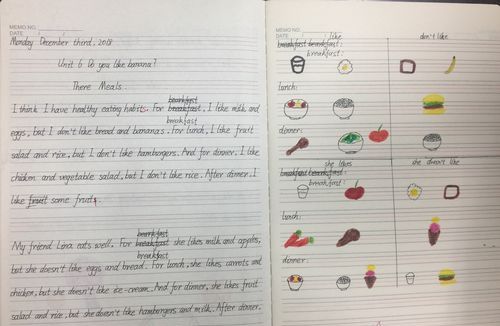 MEMO NO.
DATE / /
Monday December third, 2018
Unit 6 Do you like banana?
There Meals:
breankfast
I think I have healthy eating habits. For breankfast, I like milk and
breakfast
eggs, but I don't like bread and bananas. For lunch, I like fruit
salad and rice, but I don't like hamburgers. And for dinner, I like
chicken and vegetable salad, but I don't like rice. After dinner, I
like some fruits.
My friend Lina eats well. For she likes milk and apples,
breakfast
but she doesn't like eggs and bread. For lunch, she likes carrots and
chicken, but she doesn't like ice-cream. And for dinner, she likes fruit
salad and rice, but she doesn't like hamburgers and milk. After dinner,
MEMO NO.
DATE / /
I like
don't like
breakfast:
lunch:
dinner:
she likes
she doesn't like
breakfast:
lunch:
dinner: